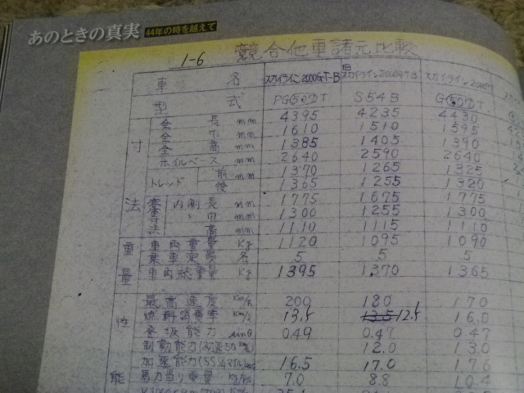 あのときの真実 44年の時を越えて
1-6 競合他車諸元比較
車名 スカイライン2000GT-B スカイライン2000GTB スカイライン2000GT
型式 S54B
寸法 全長 mm 4395 4235 4430
全巾 mm 1610 1510 1595
全高 mm 1385 1405 1390
ホイルベース mm 2640 2590 2640
トレッド 前 mm 1370 1265 1325
後 mm 1365 1255 1320
室内寸法 内側 長 mm 1775 1675 1775
巾 mm 1300 1255 1300
高 mm 1110 1115 1110
重量 車両重量 Kg 1120 1095 1090
乗車定員 名 5 5 5
車両総重量 Kg 1395 1370 1365
性能 最高速度 Km/h 200 180 170
燃料消費率 Km/l 13.5 13.5 12.5 16.0
登坂能力 sinθ 0.49 0.47 0.47
制動能力 12.0 13.0
加速能力 16.5 17.0 17.6
馬力当り重量 7.0 8.8 10.4